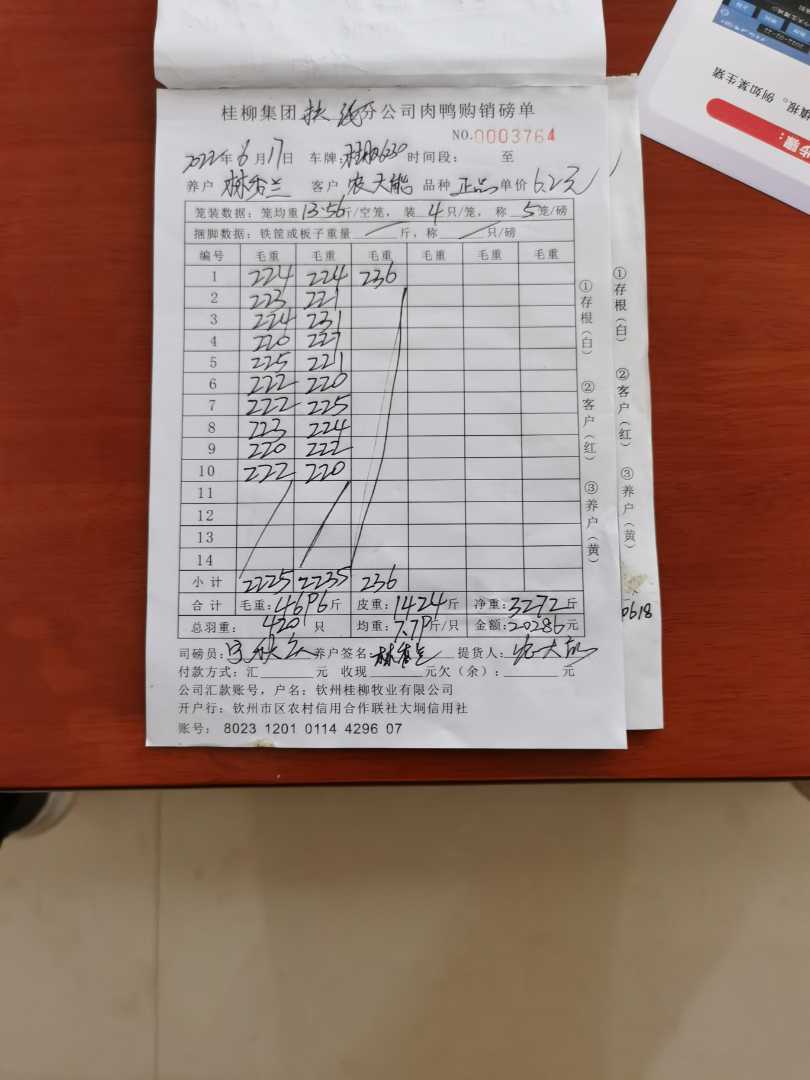 桂柳集团 扶绥 分公司肉鸭购销磅单
NO.0003764
2022年6月17日 车牌: 时间段: 至
养户 林香兰 客户 农大能 品种 正品 单价 6.2元
笼装数据:笼均重13.56斤/空笼,装4只/笼,称5笼/磅
捆脚数据:铁筐或板子重量 斤,称 只/磅
编号 毛重 毛重 毛重 毛重 毛重 毛重
1 224 224 236
2 223 221
3 224 231
4 220 227
5 225 221
6 222 220
7 222 225
8 223 224
9 220 222
10 222 220
11
12
13
14
小计 2225 2235 236
合计 毛重:4696斤 皮重:1424斤 净重:3272斤
总羽重: 420 只 均重:7.79斤/只 金额:20286元
司磅员: 养户签名 林香兰 提货人: 农大能
付款方式:汇 元 收现 元欠(余): 元
公司汇款账号,户名:钦州桂柳牧业有限公司
开户行:钦州市区农村信用合作联社大垌信用社
账号: 8023 1201 0114 4296 07
①存根(白)
②客户(红)
③养户(黄)
①存根(白)
②客户(红)
③养户(黄)
0618
步骤:
填报。例如某生猪